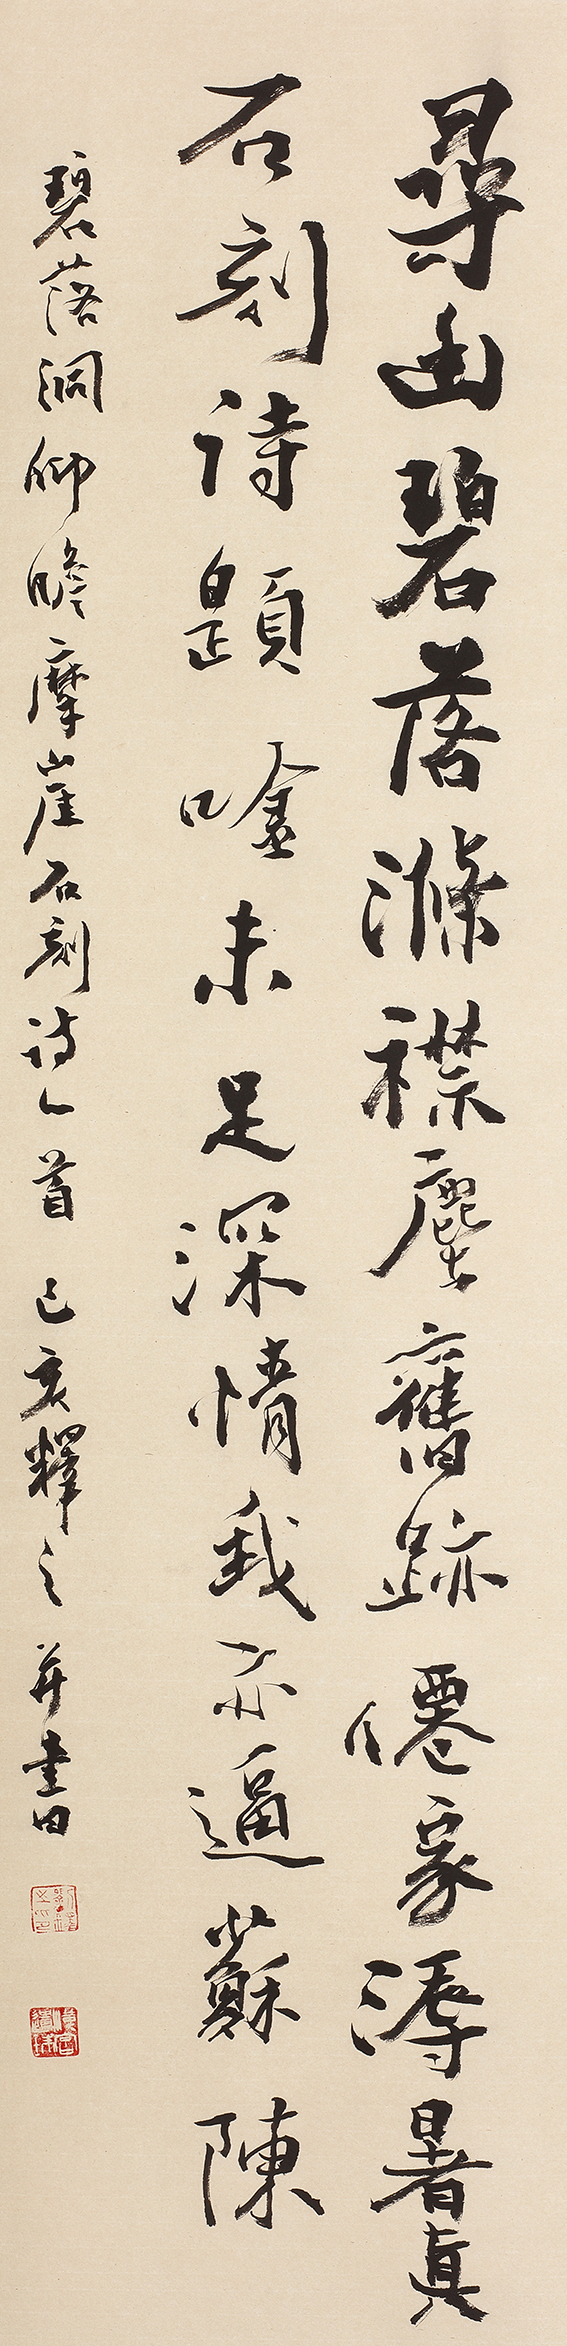 尋幽碧落滌襟塵舊跡僊家溽暑真
石刻詩題唫未足深情我亦逼蘇陳
碧落洞仰瞻摩崖石刻詩一首 己亥釋之并書